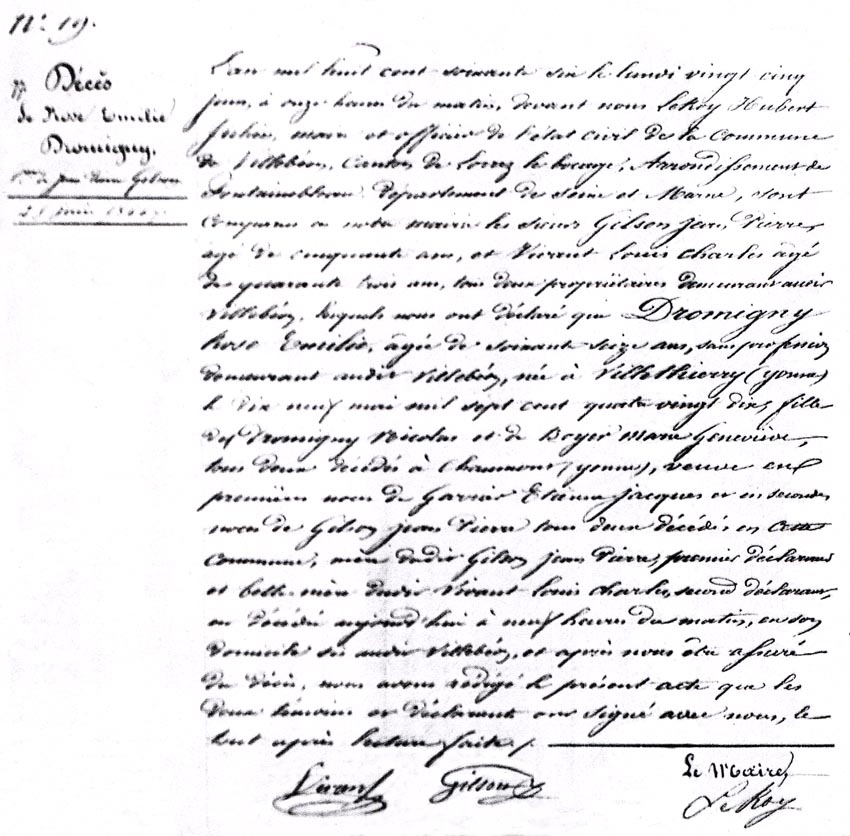 N.° 19.
Décès
de Rose Emilie
Dromigny,
Vve de Jean Pierre Gilson
25 juin
L'an mil huit cent soixante six le lundi vingt cinq
juin, à onze heures du matin, devant nous LeRoy Hubert
Julien, maire et officier de l'état civil de la Commune
de Villebéon, Canton de Lorrez le bocage, Arrondissement de
Fontainebleau Département de Seine et Marne, sont
comparus en notre mairie les sieurs Gilson Jean Pierre,
âgé de cinquante ans, et Vivant Louis Charles âgé
de quarante trois ans, tous deux propriétaires demeurant audit
Villebéon, lesquels nous ont déclaré que Dromigny
Rose Emilie, âgée de soixante seize ans, sans profession
demeurant audit Villebéon, née à Villethierry (yonne)
le dix neuf mai mil sept cent quatre vingt dix, fille
de Dromigny Nicolas et de Boyer Marie Geneviève,
tous deux décédés à Chaumont (yonne), veuve en
premières noces de Garnier Etienne Jacques et en secondes
noces de Gilson Jean Pierre tous deux décédés en cette
commune, mère dudit Gilson Jean Pierre, premier déclarant
et belle mère dudit Vivant Louis Charles, second déclarant,
est décédée aujourd'hui à neuf heures du matin, en son
domicile sis audit Villebéon, et après nous être assuré
du décès, nous avons rédigé le présent acte que les
deux témoins et déclarants ont signé avec nous, le
tout après lecture faite.
Vivant Gilson Le Maire,
LeRoy